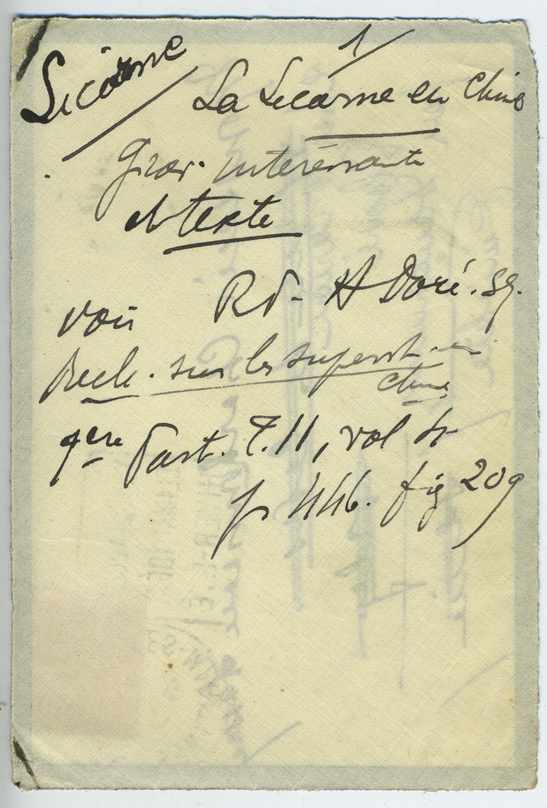 Licorne
1/
La Licorne en Chine
Grav. intéressante
et texte
voir Rd. H Doré. sg.
Rech. sur les superst. en
Chine
1ere Part. T. II, vol
p 446. fig 209